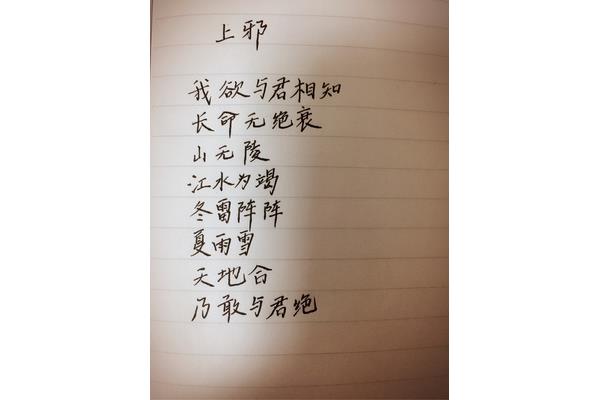 上邪
我欲与君相知
长命无绝衰
山无陵
江水为竭
冬雷阵阵
夏雨雪
天地合
乃敢与君绝